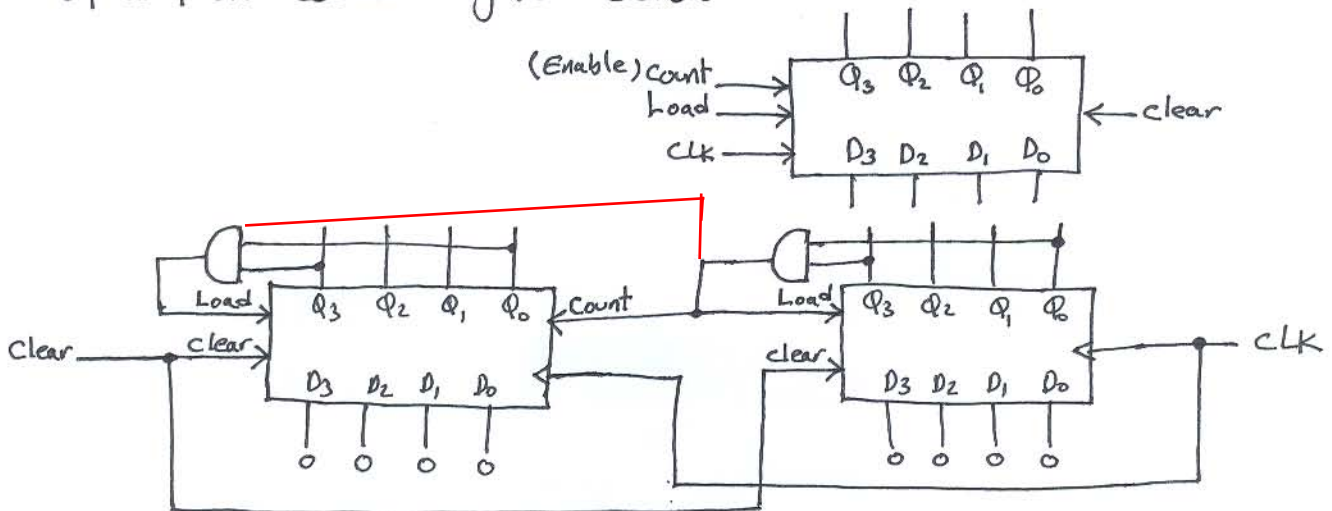 (Enable) Count
Load
CLK
Q3 Q2 Q1 Q0
D3 D2 D1 D0
clear
Load
Q3 Q2 Q1 Q0
Count
Clear
clear
D3 D2 D1 D0
0 0 0 0
Load
Q3 Q2 Q1 Q0
clear
D3 D2 D1 D0
0 0 0 0
CLK